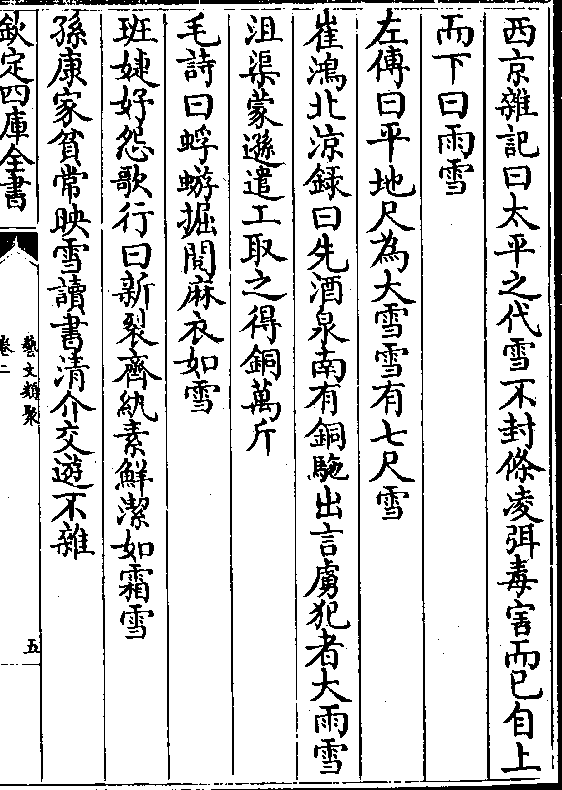 西京雜記曰太平之代雪不封條凌弭毒害而已自上
而下曰雨雪
左傳曰平地尺為大雪雪有七尺雪
崔鴻北涼録曰先酒泉南有銅駞出言虜犯者大雨雪
沮渠蒙遜遣工取之得銅萬斤
毛詩曰蜉蝣掘閱麻衣如雪
班婕妤怨歌行曰新裂齊紈素鮮潔如霜雪
孫康家貧常映雪讀書清介交遊不雜
欽定四庫全書
藝文類聚
卷二
五